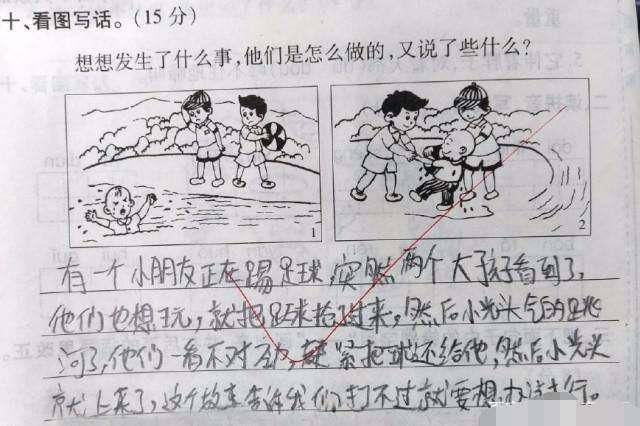 十、看图写话。（15 分）
想想发生了什么事，他们是怎么做的，又说了些什么？
1
2
有一个小朋友正在踢足球，突然两个大孩子看到了，
他们也想玩，就把足球抢过来，然后小光头气的跳
河了，他们一看不对劲，赶紧把球还给他，然后小光头
就上来了，这个故事告诉我们打不过就要想办法才行。